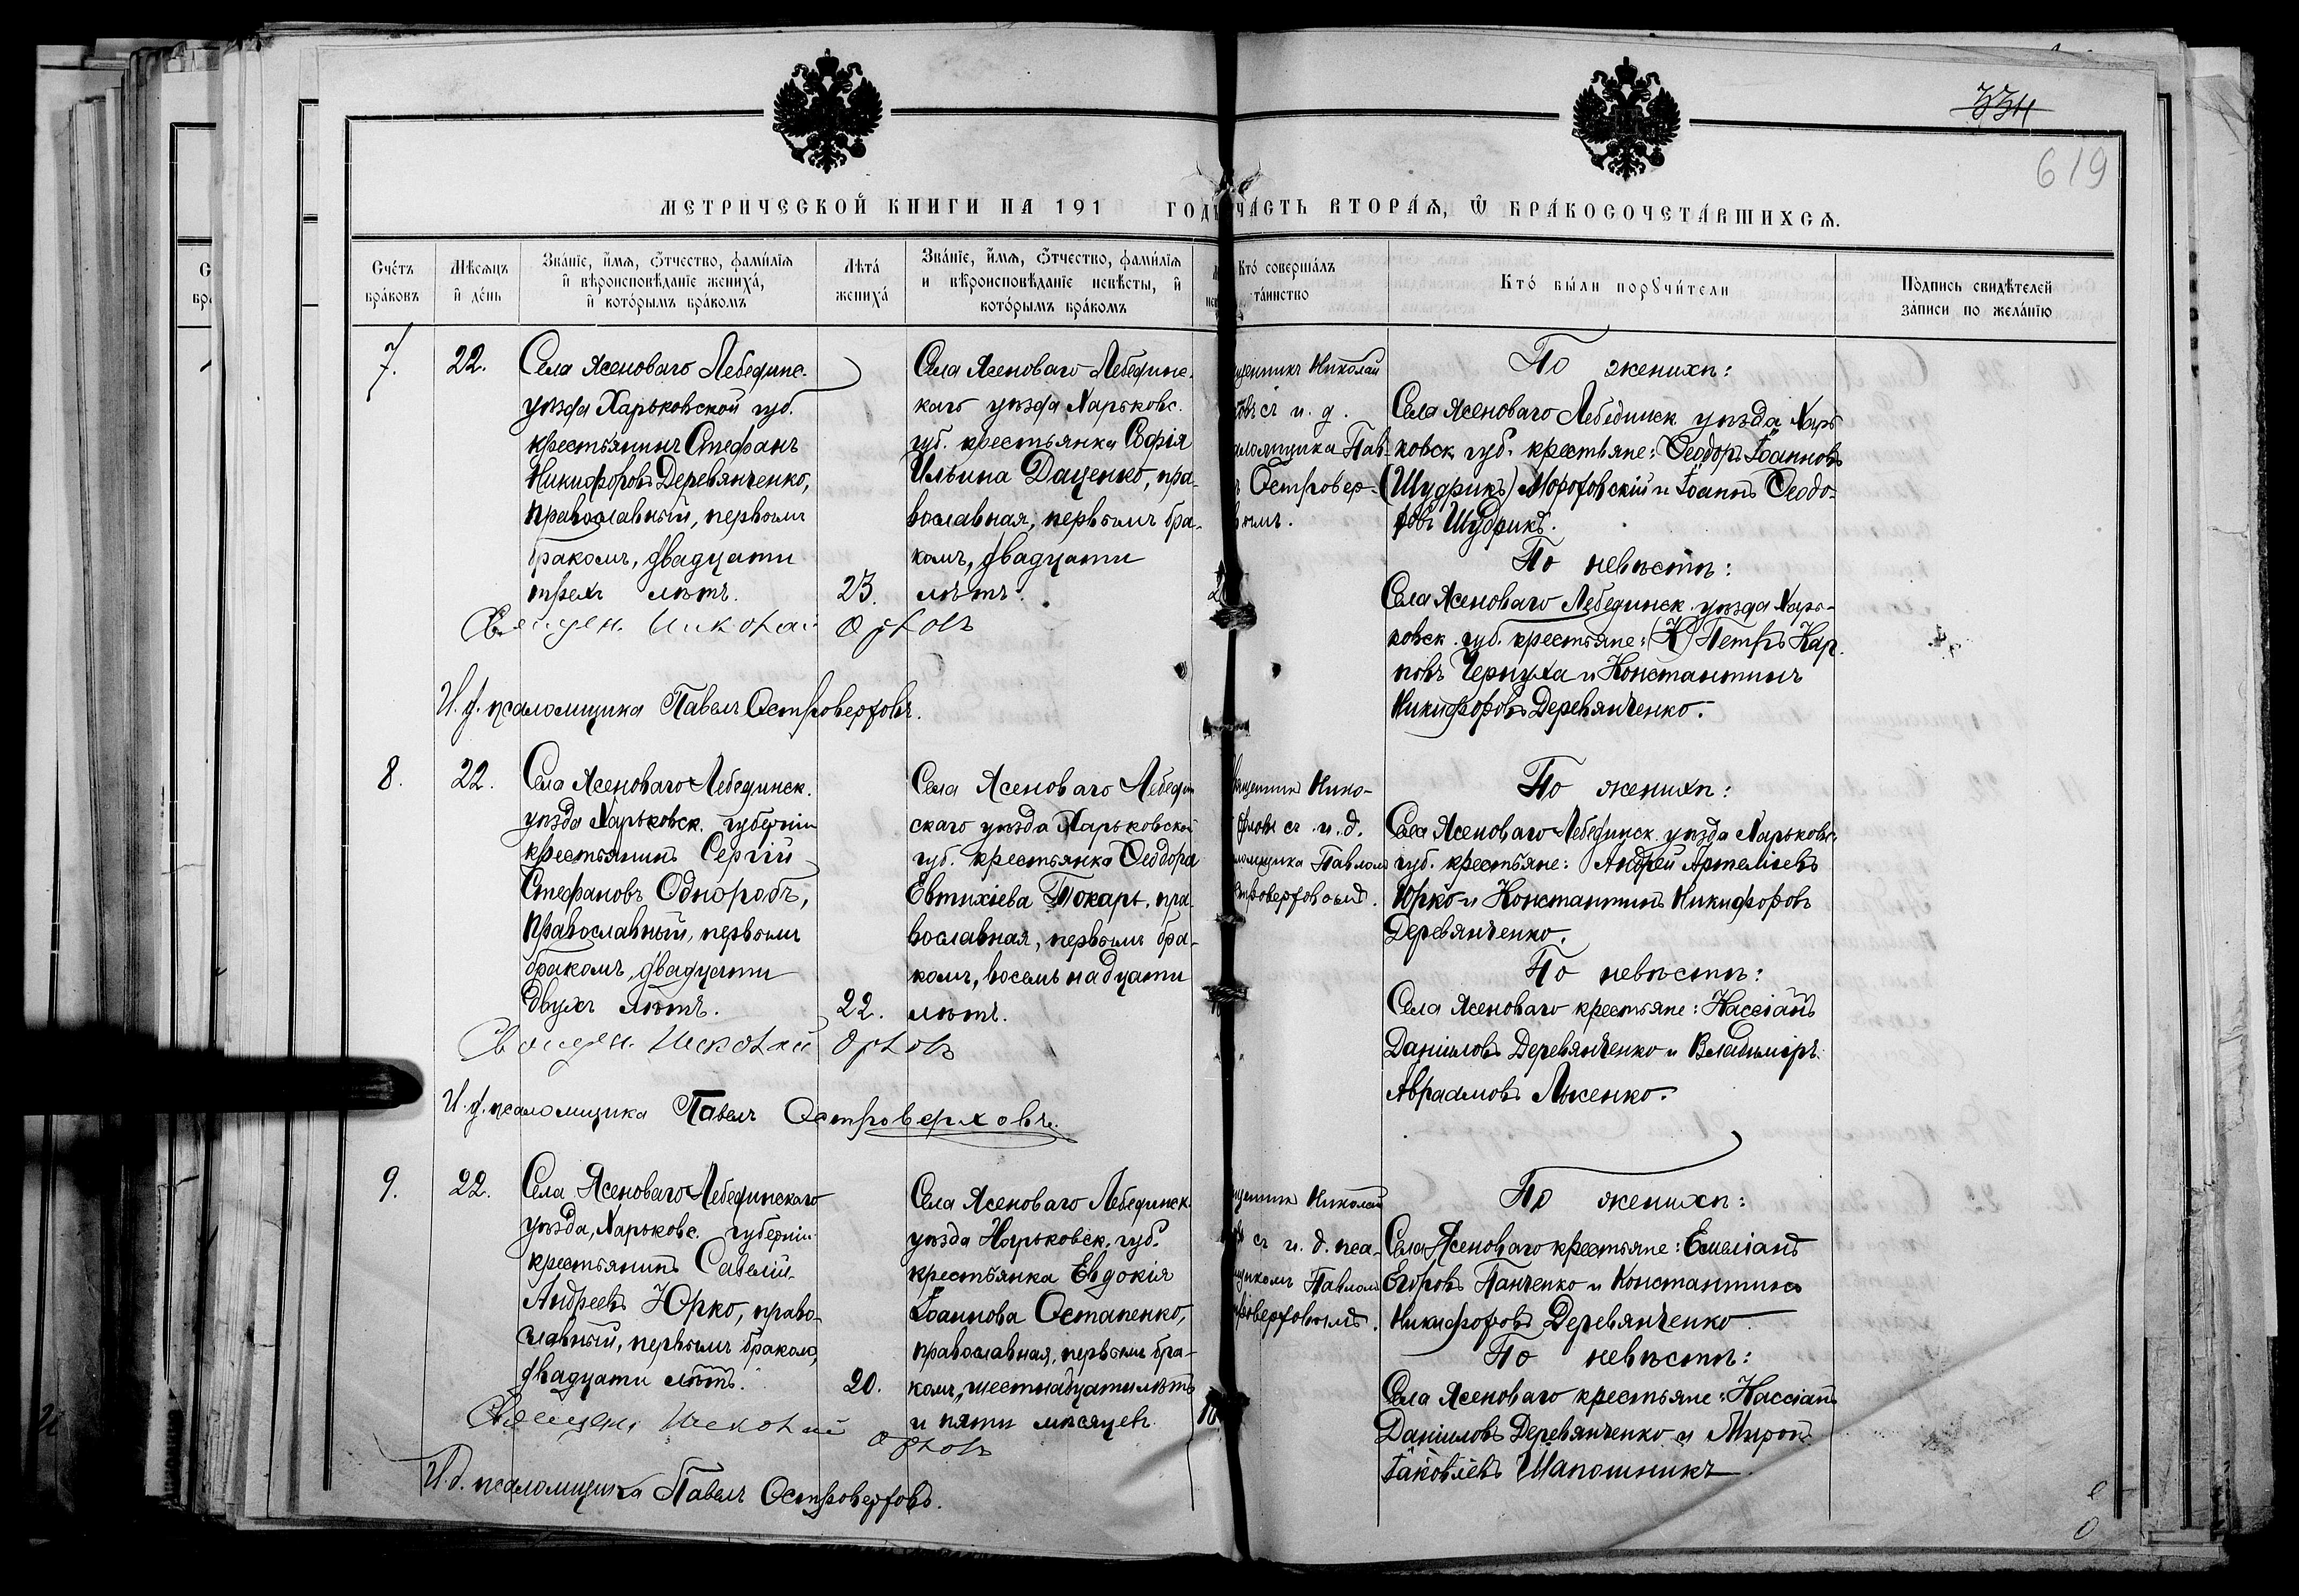 334
619
МЕТРИЧЕСКОЙ КНИГИ НА 191 ГОДЪ ЧАСТЬ ВТОРАѦ, Ѿ БРАКОСОЧЕТАВШИХСѦ.
Счетъ браковъ
Мѣсяцъ и день
Званіе, имя, отчество, фамилія и вѣроисповѣданіе жениха, и которымъ бракомъ
Лѣта жениха
Званіе, имя, отчество, фамилія и вѣроисповѣданіе невѣсты, и которымъ бракомъ
Кто совершалъ таинство
Кто были поручители
Подпись свидѣтелей записи по желанію
7.
22.
Села Ясеноваго Лебединс.
уѣзда Харьковской губ.
крестьянинъ Стефанъ
Никифоровъ Деревянченко,
православный, первымъ
бракомъ, двадцати
трехъ лѣтъ.
23.
Села Ясеноваго Лебединс
каго уѣзда Харьковс.
губ. крестьянка Софія
Ильина Даценко, пра-
вославная, первымъ бра-
комъ, двадцати
лѣтъ.
щенникъ Николай
съ и. д.
аломщика Пав
Островер-
По женихѣ:
Села Ясеноваго Лебединск. уѣзда Харь
ковск. губ. крестьяне: Ѳеодоръ Іоанновъ
(Шудрикъ) Мороховскій и Іоаннъ Ѳеодо-
ровъ Шудрикъ.
По невѣстѣ:
Села Ясеноваго Лебединск. уѣзда Харь-
ковск. губ. крестьяне: (К) Петръ Кар
повъ Чернуха и Константинъ
Никифоровъ Деревянченко.
Священ. Николай Орловъ
И. д. псаломщика Павелъ Островерховъ.
8.
22.
Села Ясеноваго Лебединск.
уѣзда Харьковск. губерніи
крестьянинъ Сергій
Стефановъ Однорогъ,
православный, первымъ
бракомъ, двадцати
двухъ лѣтъ.
22.
Села Ясеноваго Лебедин
скаго уѣзда Харьковской
губ. крестьянка Ѳеодора
Евтихіева Токарь, пра
вославная, первымъ бра-
комъ, восемьнадцати
лѣтъ.
щенникъ Нико-
рловъ съ и. д.
ломщика Павломъ
троверховымъ.
По женихѣ:
Села Ясеноваго Лебединск. уѣзда Харьковс.
губ. крестьяне: Андрей Артеміевъ
Юрко и Константинъ Никифоровъ
Деревянченко.
По невѣстѣ:
Села Ясеноваго крестьяне: Кассіанъ
Даніиловъ Деревянченко и Владиміръ
Авраамовъ Лысенко.
Священ. Николай Орловъ
И. д. псаломщика Павелъ Островерховъ.
9.
22.
Села Ясеноваго Лебединскаго
уѣзда, Харьковс. губерніи
крестьянинъ Савелій
Андреевъ Юрко, право-
славный, первымъ бракомъ,
двадцати лѣтъ.
20.
Села Ясеноваго Лебединск.
уѣзда Харьковск. губ.
крестьянка Евдокія
Іоаннова Остапенко,
православная, первымъ бра-
комъ, шестнадцати лѣтъ
и пяти мѣсяцев.
щенникъ Николай
съ и. д. пса-
щикомъ Павломъ
роверховымъ.
По женихѣ:
Села Ясеноваго крестьяне: Емеліанъ
Егоровъ Панченко и Константинъ
Никифоровъ Деревянченко
По невѣстѣ:
Села Ясеноваго крестьяне: Кассіанъ
Даніиловъ Деревянченко и Миронъ
Іаковлевъ Шапошникъ.
Священ. Николай Орловъ
И. д. псаломщика Павелъ Островерховъ.